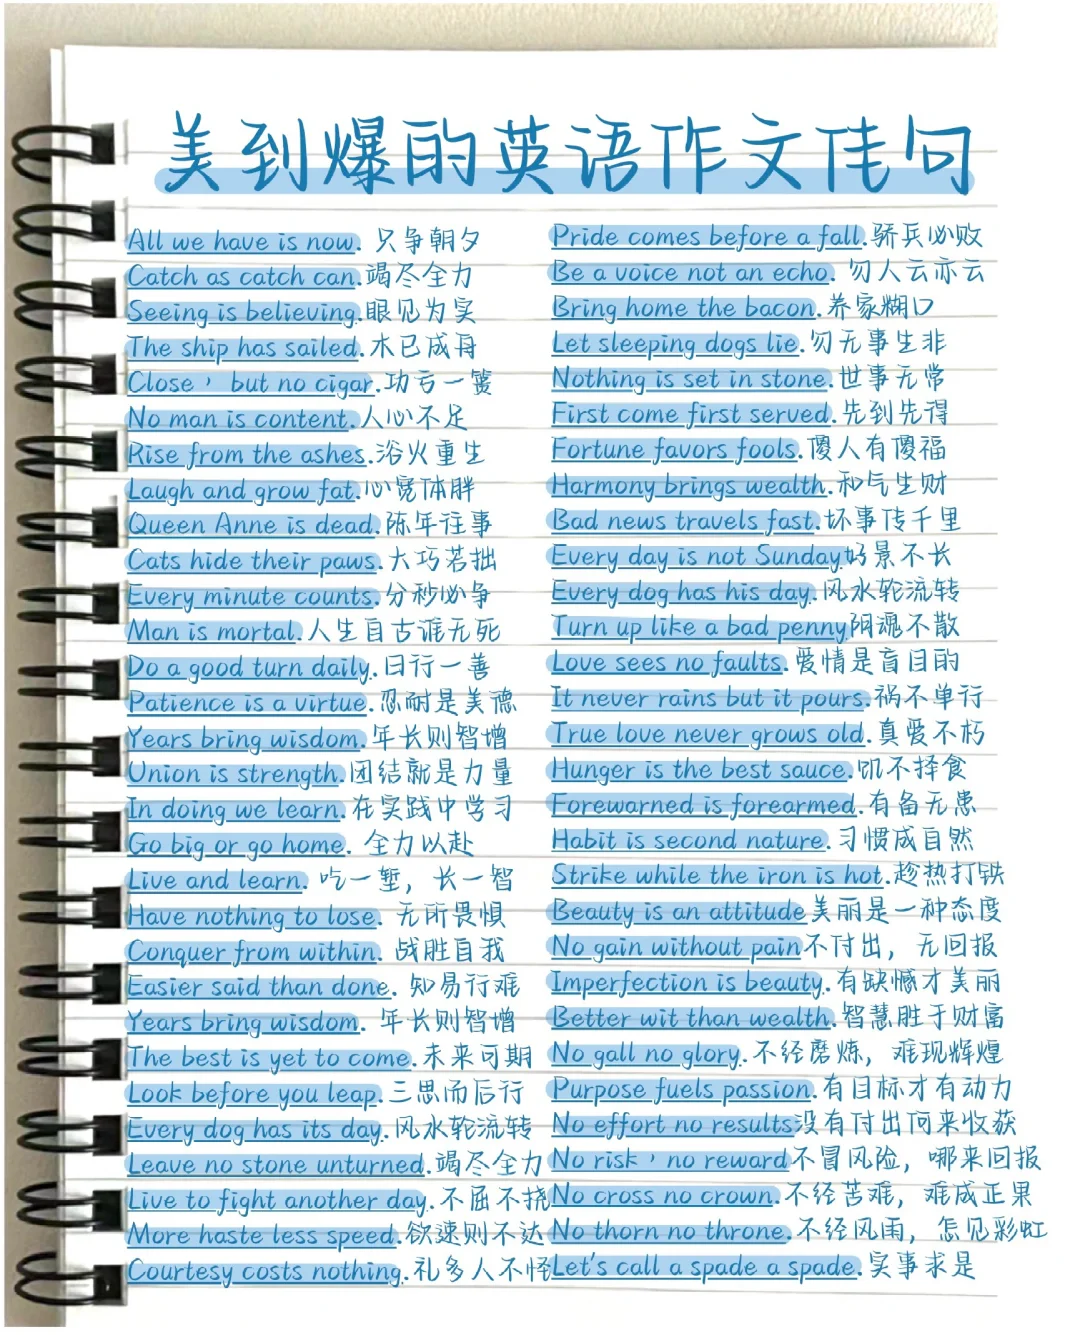 美到爆的英语作文佳句
All we have is now. 只争朝夕
Catch as catch can.竭尽全力
Seeing is believing.眼见为实
The ship has sailed.木已成舟
Close, but no cigar.功亏一篑
No man is content.人心不足
Rise from the ashes.浴火重生
Laugh and grow fat.心宽体胖
Queen Anne is dead.陈年往事
Cats hide their paws.大巧若拙
Every minute counts.分秒必争
Man is mortal.人生自古谁无死
Do a good turn daily.日行一善
Patience is a virtue.忍耐是美德
Years bring wisdom.年长则智增
Union is strength.团结就是力量
In doing we learn.在实践中学习
Go big or go home. 全力以赴
Live and learn. 吃一堑，长一智
Have nothing to lose. 无所畏惧
Conquer from within. 战胜自我
Easier said than done. 知易行难
Years bring wisdom. 年长则智增
The best is yet to come.未来可期
Look before you leap.三思而后行
Every dog has its day.风水轮流转
Leave no stone unturned.竭尽全力
Live to fight another day.不屈不挠
More haste less speed.欲速则不达
Courtesy costs nothing.礼多人不怪
Pride comes before a fall.骄兵必败
Be a voice not an echo. 勿人云亦云
Bring home the bacon.养家糊口
Let sleeping dogs lie.勿无事生非
Nothing is set in stone.世事无常
First come first served.先到先得
Fortune favors fools.傻人有傻福
Harmony brings wealth.和气生财
Bad news travels fast.坏事传千里
Every day is not Sunday好景不长
Every dog has his day.风水轮流转
Turn up like a bad penny阴魂不散
Love sees no faults.爱情是盲目的
It never rains but it pours.祸不单行
True love never grows old.真爱不朽
Hunger is the best sauce.饥不择食
Forewarned is forearmed.有备无患
Habit is second nature.习惯成自然
Strike while the iron is hot.趁热打铁
Beauty is an attitude美丽是一种态度
No gain without pain不付出，无回报
Imperfection is beauty.有缺憾才美丽
Better wit than wealth.智慧胜于财富
No gall no glory.不经磨炼，难现辉煌
Purpose fuels passion.有目标才有动力
No effort no results没有付出何来收获
No risk, no reward不冒风险，哪来回报
No cross no crown.不经苦难，难成正果
No thorn no throne.不经风雨，怎见彩虹
Let's call a spade a spade.实事求是